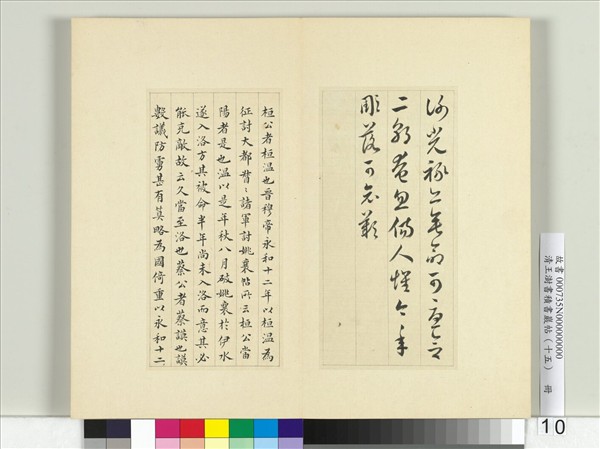 二朝奄忽傷人懷今年
彫落可哀歎
桓公者桓温也晉穆帝永和十二年以桓温為
征討大都督〻諸軍討姚襄帖所云桓公當
陽者是也温以是年秋八月破姚襄於伊水
遂入洛方其被命半年尚未入洛而意其必
能克敵故云久當至洛也蔡公者蔡謨也謨
數議防甚有英略為國倚重以永和十二
故書000735N000000000
清王澍書積書巖帖（十五） 冊
10